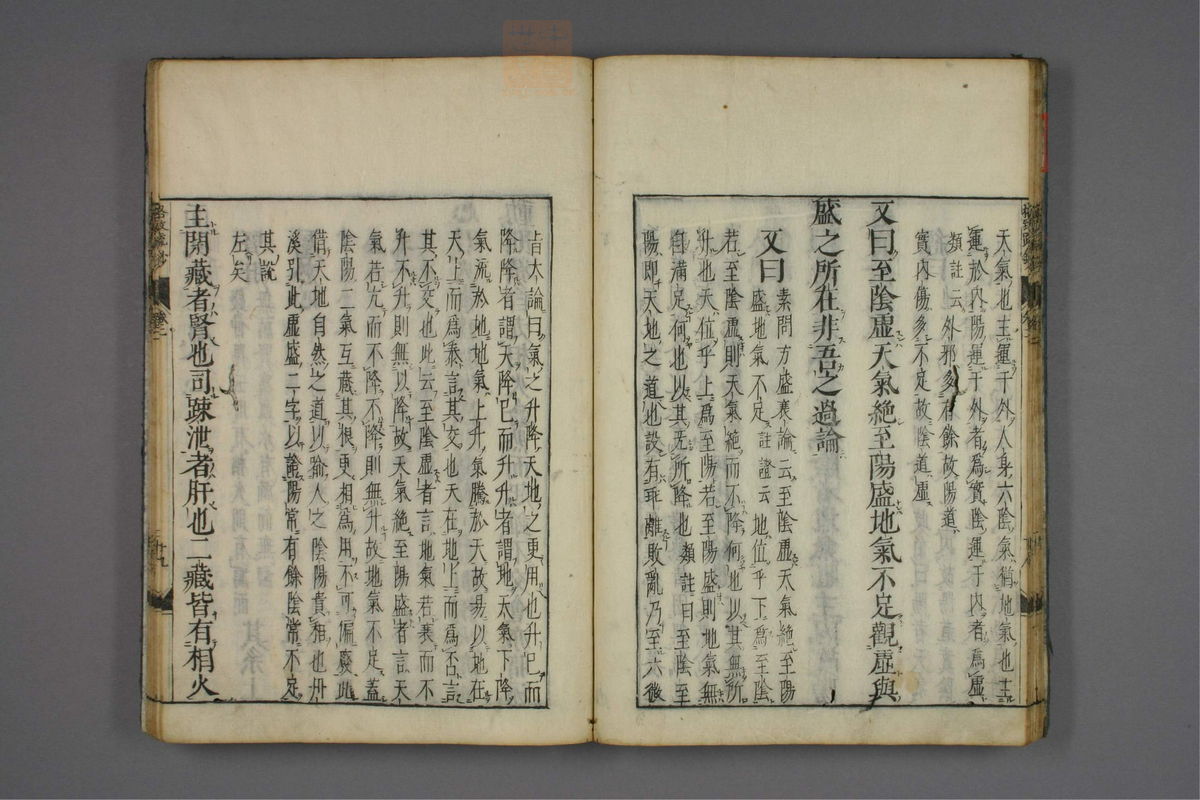 天氣也主運于外人身六陰氣猶地氣也主
運於内陽運于外者爲實陰運于内者爲虛
類註云外邪多有餘故陽道
實内傷多不足故陰道虛
又曰至陰虛天氣絶至陽盛地氣不足觀虛與
盛之所在非吾之過論
又曰
素問方盛衰論云至陰虛天氣絶至陽
盛地氣不足註證云地位乎下爲至陰
若至陰虛則天氣絶而不降何也以其無所
升也天位乎上爲至陽若至陽盛則地氣無
自滿足何也以其无所降也類註曰至陰至
陽即天地之道也設有乖離敗亂乃至六微
旨大論曰氣之升降天地之更用也升已而
降降者謂天降已而升升者謂地天氣下降
氣流於地地氣上升氣騰於天故易以地在
天上而爲泰言其交也天在地上而爲否言
其不交也此云至陰虛者言地氣若衰而不
升不升則無以降故天氣絶至陽盛者言天
氣若亢而不降不降則無升故地氣不足蓋
陰陽二氣互藏其根更相爲用不可偏廢此
借天地自然之道以喩人之陰陽貴相也丹
溪引此虛盛二字以論陽常有餘陰常不足
其說
左矣
主閉藏者腎也司疎泄者肝也二藏皆有相火